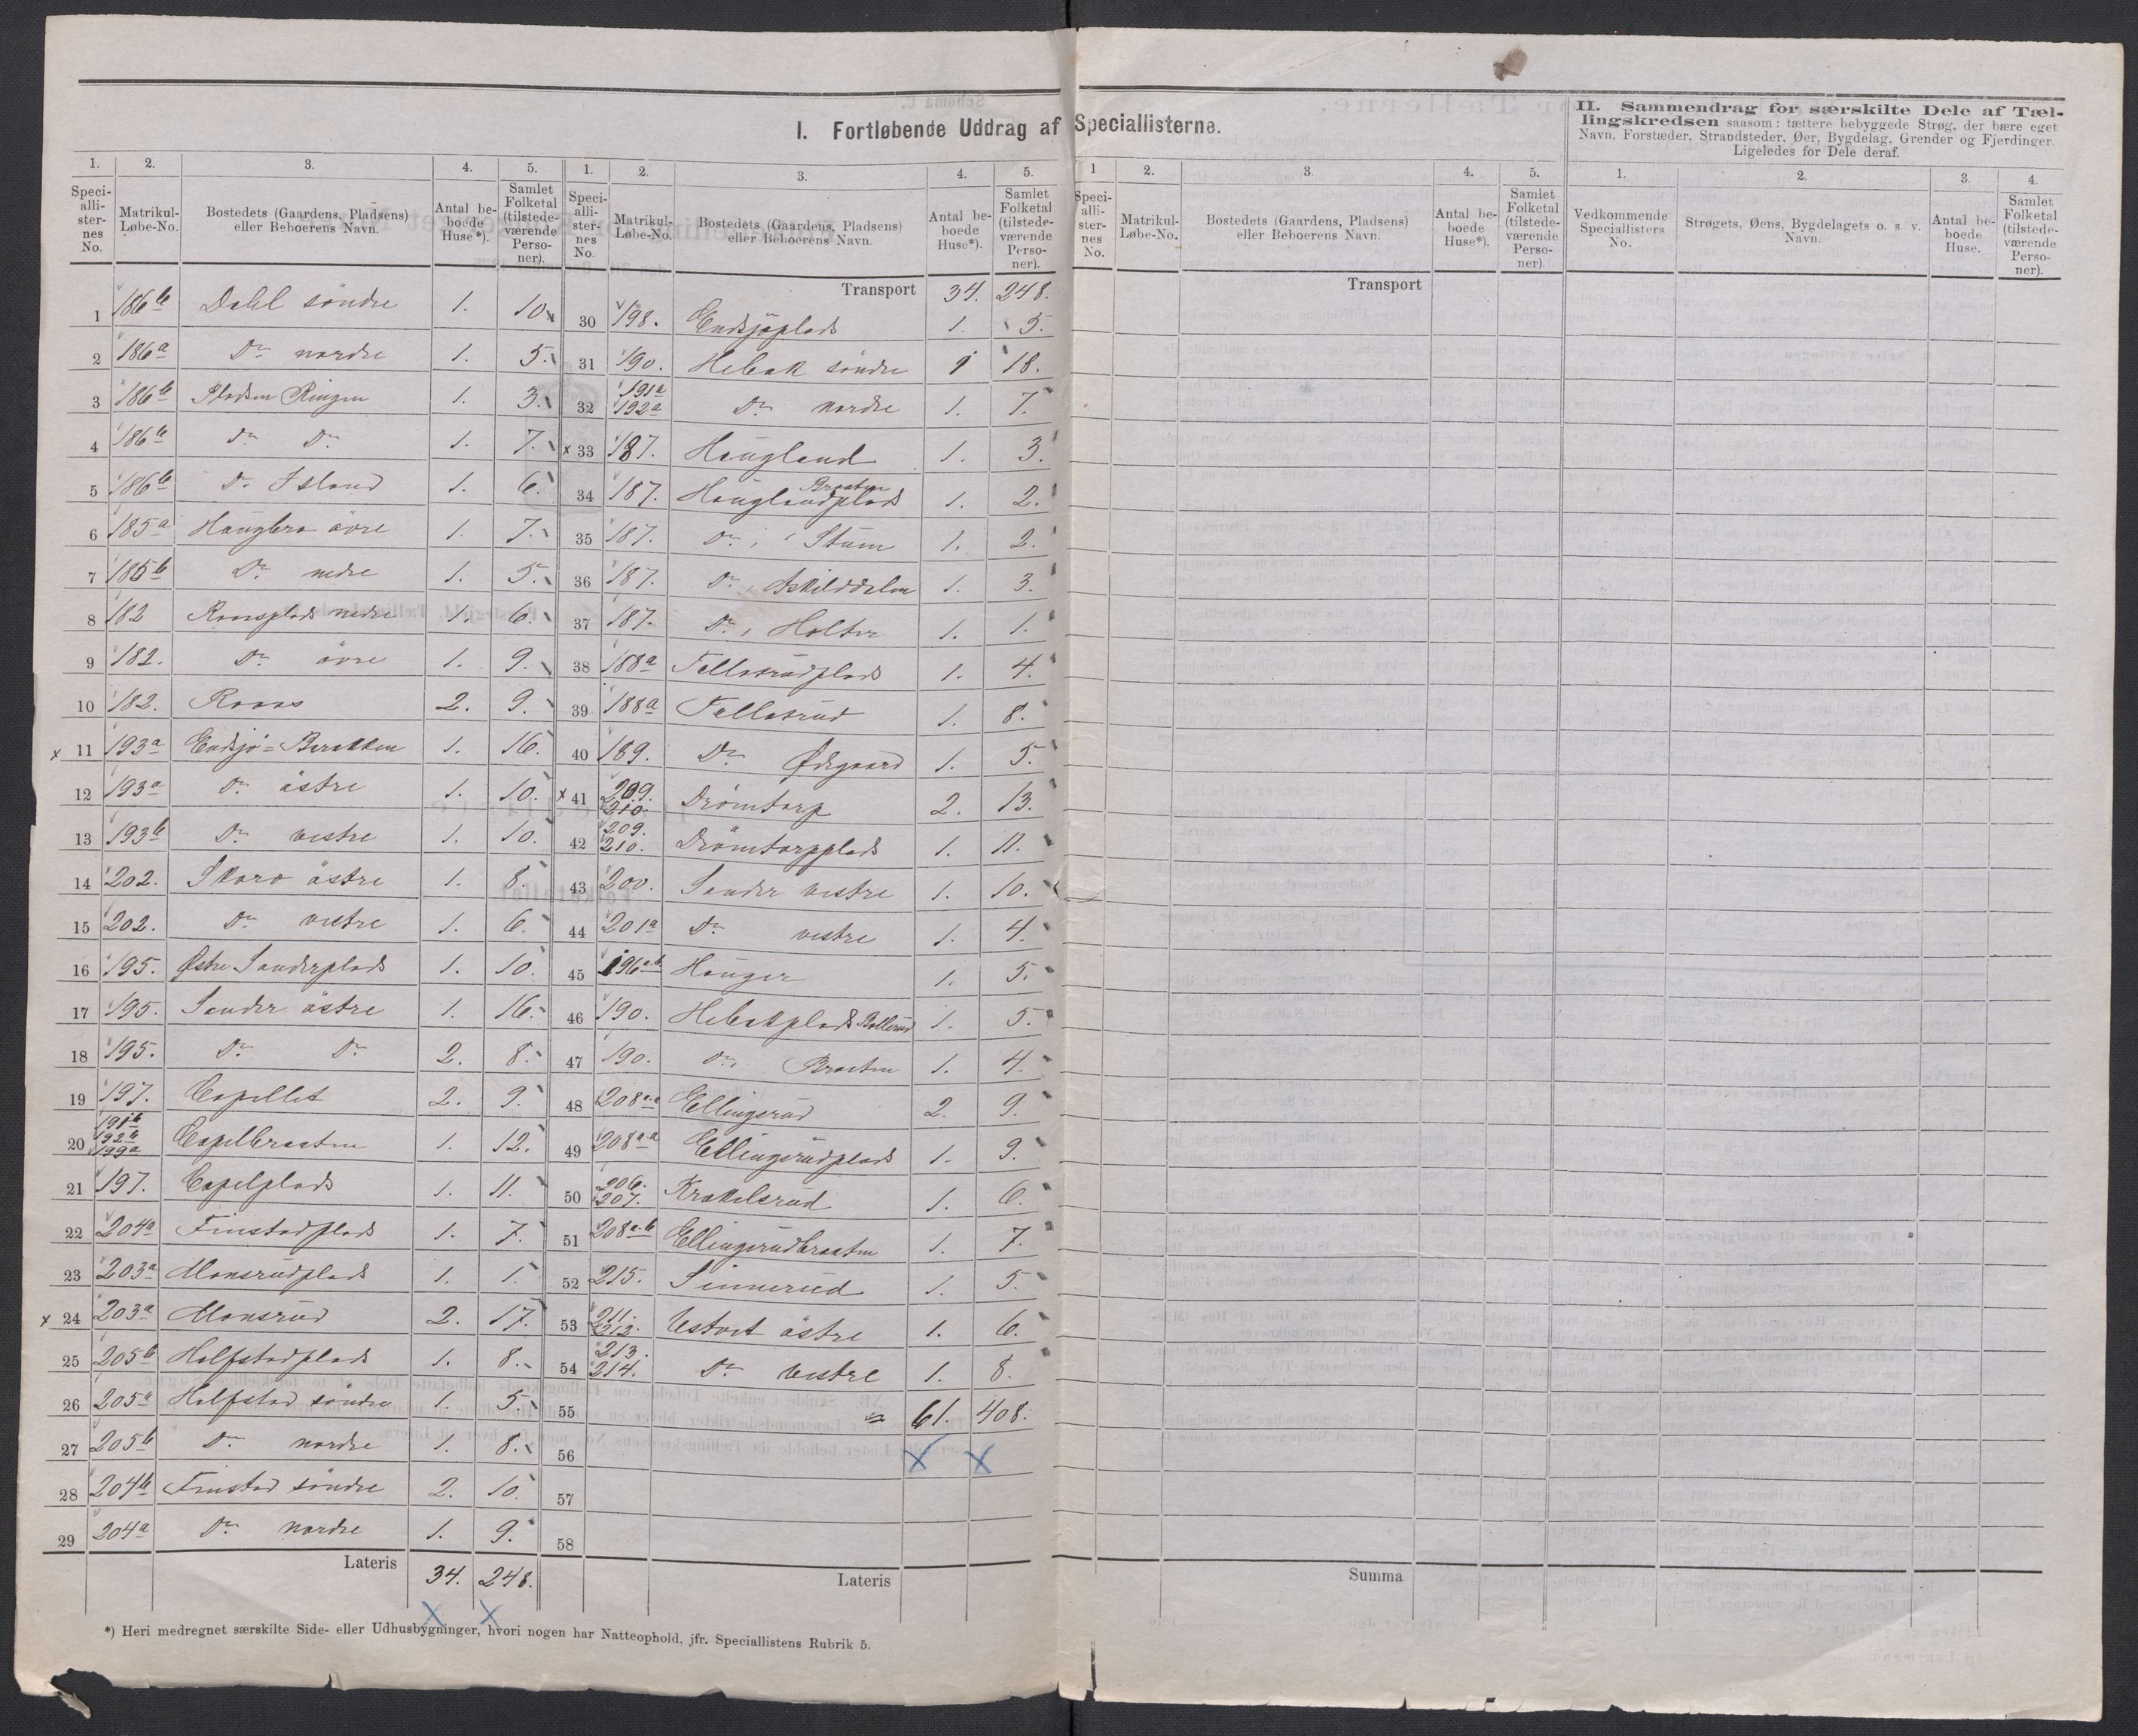 I. Fortløbende Uddrag af Speciallisterne.
II. Sammendrag for særskilte Dele af Tæl-
lingskredsen saasom: tættere bebyggede Strøg, der bære eget
Navn, Forstæder, Strandsteder, Øer, Bygdelag, Grender og Fjerdinger.
Ligeledes for Dele deraf.
1. 2. 3. 4. 5. 1. 2. 3. 4. 5. 1 2. 3. 4. 5. 1. 2. 3. 4.
Speci-alli-ster-nes No. Matrikul-Løbe-No. Bostedets (Gaardens, Pladsens) eller Beboerens Navn. Antal be-boede Huse*). Samlet Folketal (tilstede-værende Perso-ner).
Speci-alli-ster-nes No. Matrikul-Løbe-No. Bostedets (Gaardens, Pladsens) eller Beboerens Navn. Antal be-boede Huse*). Samlet Folketal (tilstede-værende Perso-ner).
Speci-alli-ster-nes No. Matrikul-Løbe-No. Bostedets (Gaardens, Pladsens) eller Beboerens Navn. Antal be-boede Huse*). Samlet Folketal (tilstede-værende Perso-ner).
Vedkommende Speciallisters No. Strøgets, Øens, Bygdelagets o. s. v. Navn. Antal be-boede Huse. Samlet Folketal (tilstede-værende Perso-ner).
1 186b Dahl söndre 1. 10.
2 186a Do nordre 1. 5.
3 186b Pladsen Ringen 1. 3.
4 186b Do Do 1. 7.
5 186b Do Island 1. 6.
6 185a Haugbro övre 1. 7.
7 185b Do nedre 1. 5.
8 182 Raasplads nedre 1. 6.
9 182. Do övre 1. 9.
10 182. Raaas 2. 9.
x 11 193a Endsjö-Brækken 1. 16.
12 193a Do östre 1. 10.
13 193b Do vestre 1. 10.
14 202. Skaro östre 1. 8.
15 202. Do vestre 1. 6.
16 195. Østre Sanderplads 1. 10.
17 195. Sander östre 1. 16.
18 195. Do Do 2. 8.
19 197. Capellet 2. 9.
20 191b 192b 199a Capelbraaten 1. 12.
21 197. Capelplads 1. 11.
22 204a Finstadplads 1. 7.
23 203a Monsrudplads 1. 1.
x 24 203a Monsrud 2. 17.
25 205b Holfstadplads 1. 8.
26 205a Holfstad söndre 1. 5.
27 205b Do nordre 1. 8.
28 204b Finstad söndre 2. 10.
29 204a Do nordre 1. 9.
Lateris 34. 248.
Transport 34. 248.
30 198. Endsjöplads 1. 5.
31 190. Hebæk söndre 1 18.
32 191a 192a Do nordre 1. 7.
x 33 187. Haugland 1. 3.
34 187. Hauglandplads Braaten 1. 2.
35 187. Do, Stum 1. 2.
36 187. Do, Askilddalen 1. 3.
37 187. Do, Holter 1. 1.
38 188a Fellesrudplads 1. 4.
39 188a Fellesrud 1. 8.
40 189. Do Ødegaard 1. 5.
x 41 209. 210. Drömtorp 2. 13.
42 209. 210. Drömtorpplads 1. 11.
43 200. Sander vestre 1. 10.
44 201a Do vestre 1. 4.
45 196ab Hauger 1. 5.
46 190. Hebækplads Bøllerud 1. 5.
47 190. Do, Braaten 1. 4.
48 208aa Ellingsrud 2. 9.
49 208aa Ellingsrudplads 1. 9.
50 206. 207. Krakelsrud 1. 6.
51 208ab Ellingsrudbraaten 1. 7.
52 215. Sinnerud 1. 5.
53 211. 212. Estvet östre 1. 6.
54 213. 214. Do vestre 1. 8.
55 61. 408.
56
57
58
Lateris
Transport
Summa
*) Heri medregnet særskilte Side- eller Udhusbygninger, hvori nogen har Natteophold, jfr. Speciallistens Rubrik 5.